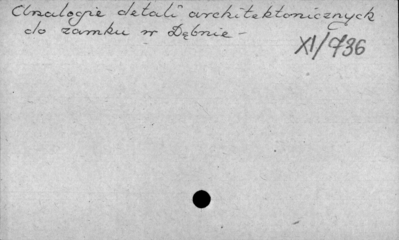 Analogie detali architektonicznych
do zamku w Dębnie -
XI/736